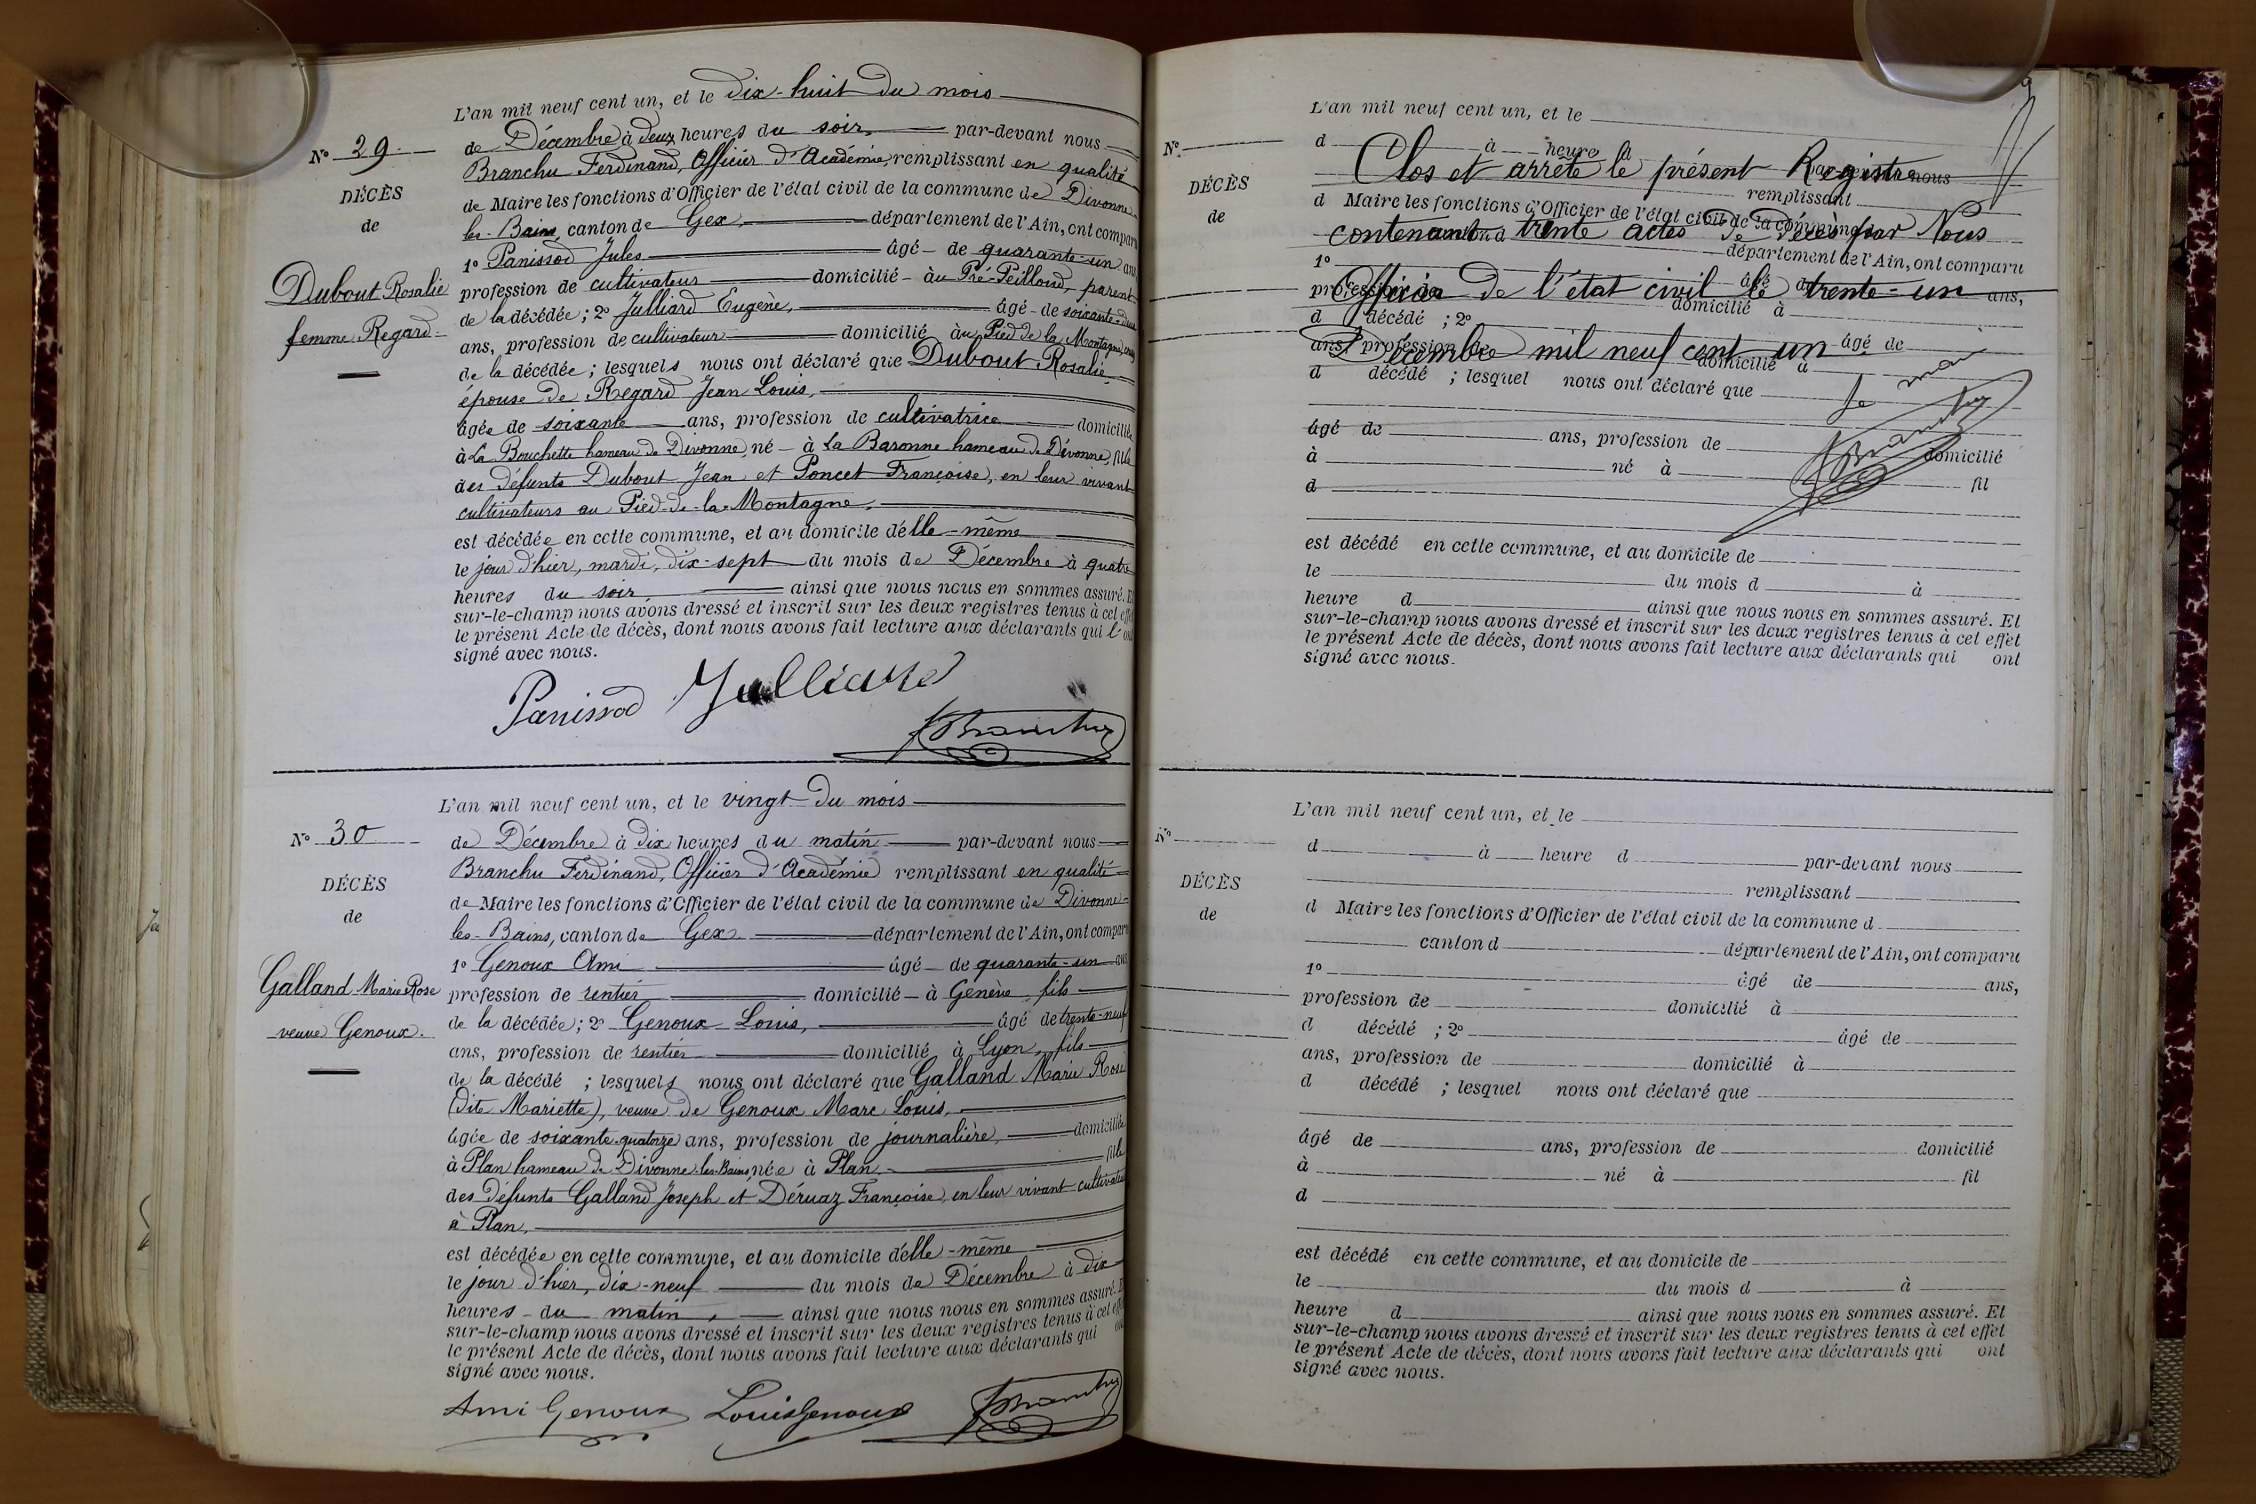 L'an mil neuf cent un, et le dix-huit du mois
N° 29
de Décembre à deux heures du soir, par-devant nous
Branchu Ferdinand, Officier d'Académie, remplissant en qualité
DÉCÈS
de Maire les fonctions d'Officier de l'état civil de la commune de Divonne-
de
les-Bains, canton de Gex, département de l'Ain, ont comparu
1° Panissod Jules âgé de quarante-un ans
Dubout Rosalie
profession de cultivateur domicilié au Pré-Peillond, parent
femme Regard
de la décédée ; 2° Julliard Eugène, âgé de soixante-deux
ans, profession de cultivateur domicilié au Pied de la Montagne,
de la décédée ; lesquels nous ont déclaré que Dubout Rosalie
épouse de Regard Jean Louis,
âgée de soixante ans, profession de cultivatrice domiciliée
à La Bouchette hameau de Divonne, né à La Baronne hameau de Divonne, fille
des défunts Dubout Jean et Poncet Françoise, en leur vivant
cultivateurs au Pied-de-la-Montagne,
est décédée en cette commune, et au domicile d'elle-même
le jour d'hier, mardi, dix-sept du mois de Décembre à quatre
heures du soir, ainsi que nous nous en sommes assuré. Et
sur-le-champ nous avons dressé et inscrit sur les deux registres tenus à cet effet
le présent Acte de décès, dont nous avons fait lecture aux déclarants qui l'ont
signé avec nous.
Panissod Julliard
FBranchu
L'an mil neuf cent un, et le vingt du mois
N° 30
de Décembre à dix heures du matin par-devant nous
Branchu Ferdinand, Officier d'Académie remplissant en qualité
DÉCÈS
de Maire les fonctions d'Officier de l'état civil de la commune de Divonne-
de
les-Bains, canton de Gex département de l'Ain, ont comparu
1° Genoux Ami âgé de quarante-un ans
Galland Marie Rose
profession de rentier domicilié à Genève, fils
veuve Genoux.
de la décédée ; 2° Genoux Louis, âgé de trente-neuf
ans, profession de rentier domicilié à Lyon, fils
de la décédé ; lesquels nous ont déclaré que Galland Marie Rose
(dite Mariette), veuve de Genoux Marc Louis,
âgée de soixante-quatorze ans, profession de journalière, domiciliée
à Plan hameau de Divonne-les-Bains, née à Plan, fille
des défunts Galland Joseph et Déruaz Françoise, en leur vivant cultivateurs
à Plan,
est décédée en cette commune, et au domicile d'elle-même
le jour d'hier, dix-neuf du mois de Décembre à dix
heures du matin, ainsi que nous nous en sommes assuré. Et
sur-le-champ nous avons dressé et inscrit sur les deux registres tenus à cet effet
le présent Acte de décès, dont nous avons fait lecture aux déclarants qui ont
signé avec nous.
Ami Genoux Louis Genoux FBranchu
L'an mil neuf cent un, et le
N°
d à heure d
Clos et arrêté le présent Registre
par-devant nous
DÉCÈS
remplissant
de
d Maire les fonctions d'Officier de l'état civil de la commune d
contenant trente actes de décès par Nous
canton d département de l'Ain, ont comparu
1° âgé de ans,
Officier de l'état civil le trente-un
profession de domicilié à
d décédé ; 2° âgé de
Décembre mil neuf cent un
ans, profession de domicilié à
Le mai
d décédé ; lesquel nous ont déclaré que
FBranchu
âgé de ans, profession de domicilié
à né à fil
d
est décédé en cette commune, et au domicile de
le du mois d à
heure d ainsi que nous nous en sommes assuré. Et
sur-le-champ nous avons dressé et inscrit sur les deux registres tenus à cet effet
le présent Acte de décès, dont nous avons fait lecture aux déclarants qui ont
signé avec nous.
L'an mil neuf cent un, et le
N°
d à heure d par-devant nous
DÉCÈS
remplissant
de
d Maire les fonctions d'Officier de l'état civil de la commune d
canton d département de l'Ain, ont comparu
1° âgé de ans,
profession de domicilié à
d décédé ; 2° âgé de
ans, profession de domicilié à
d décédé ; lesquel nous ont déclaré que
âgé de ans, profession de domicilié
à né à fil
d
est décédé en cette commune, et au domicile de
le du mois d à
heure d ainsi que nous nous en sommes assuré. Et
sur-le-champ nous avons dressé et inscrit sur les deux registres tenus à cet effet
le présent Acte de décès, dont nous avons fait lecture aux déclarants qui ont
signé avec nous.